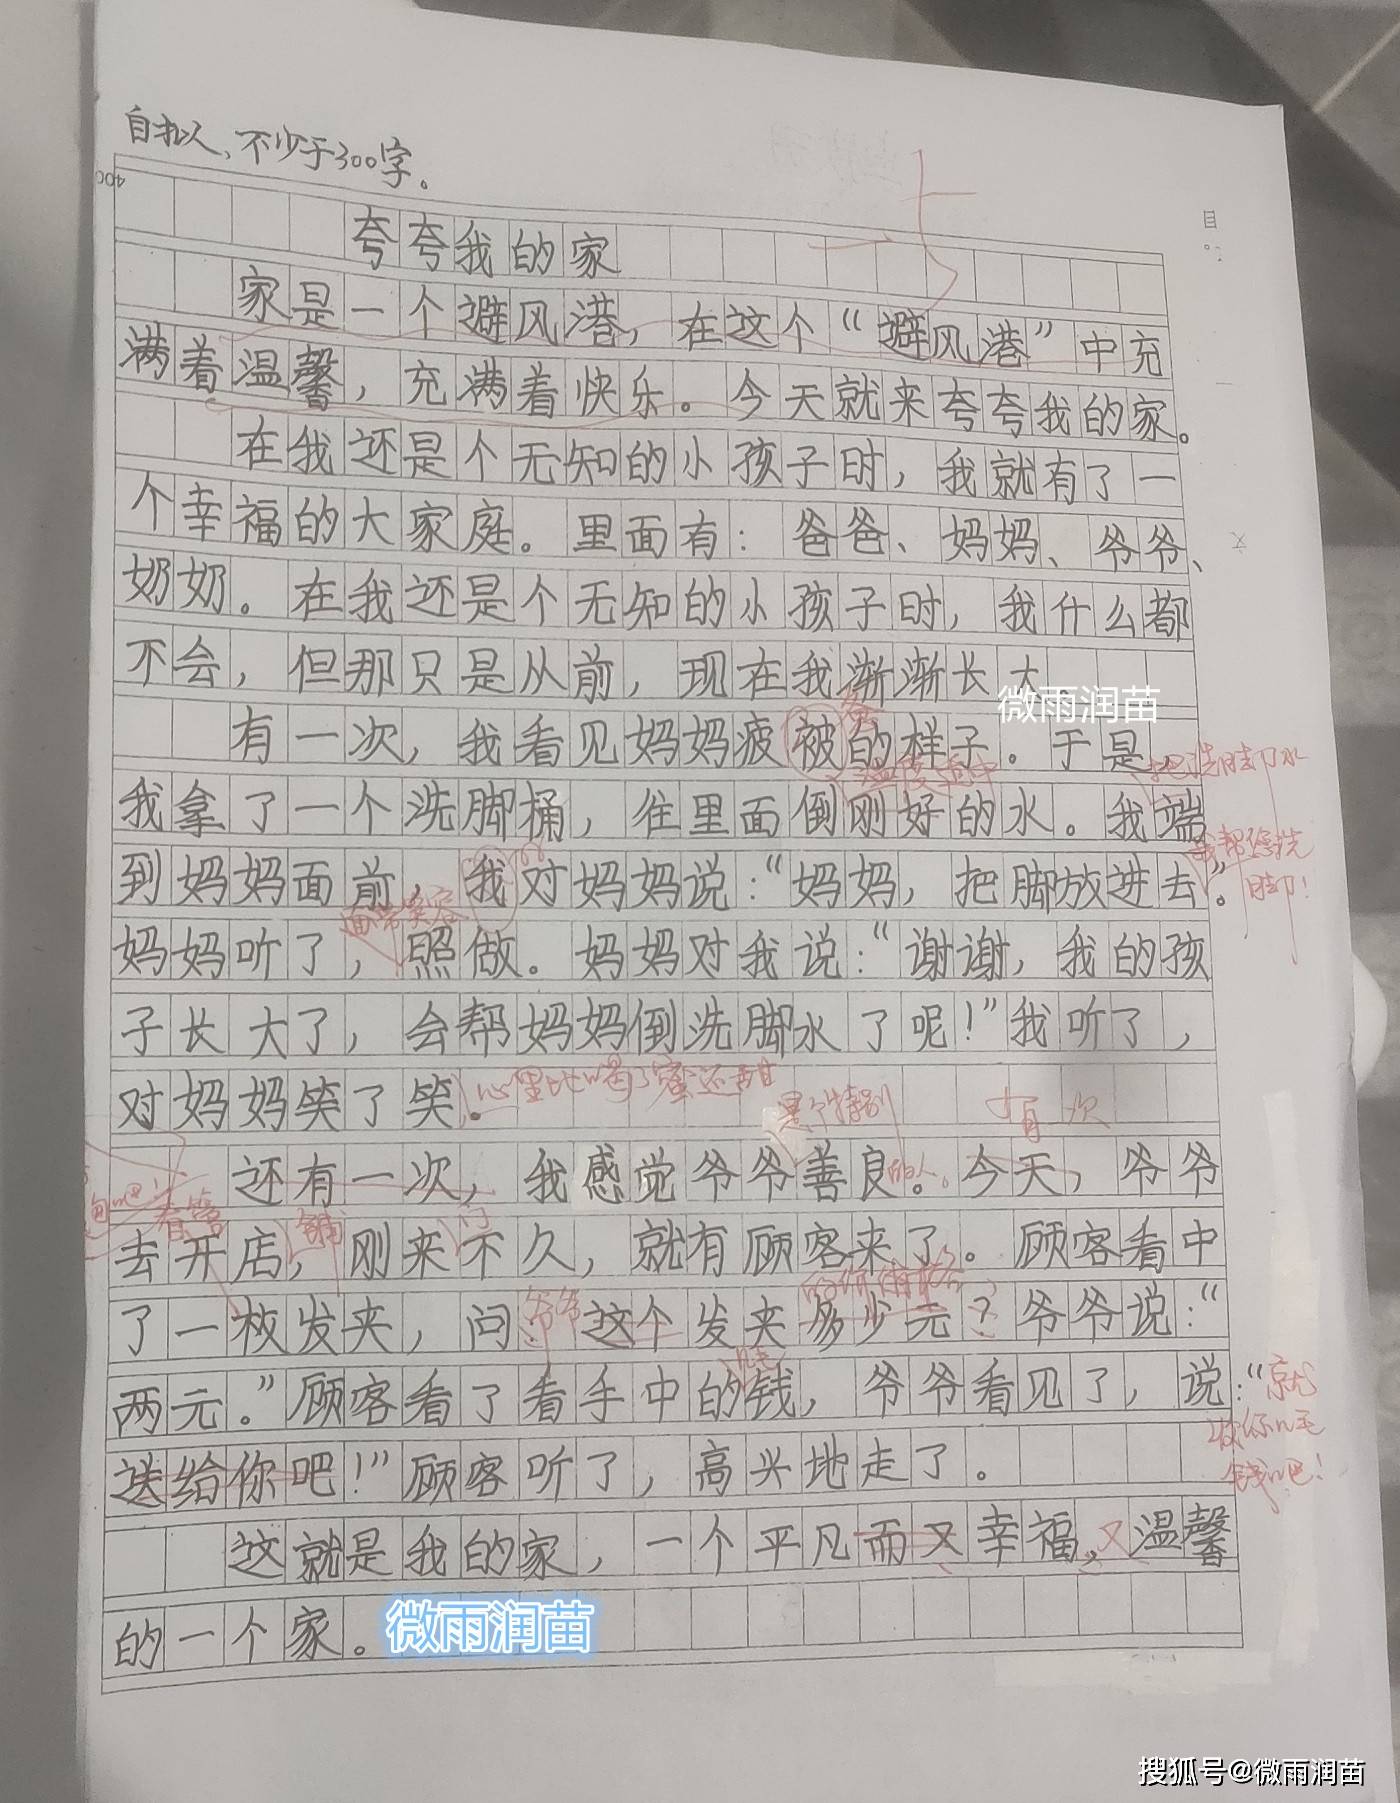 自拟人、不少于300字。
400
夸夸我的家
家是一个避风港，在这个“避风港”中充
满着温馨，充满着快乐。今天就来夸夸我的家。
在我还是个无知的小孩子时，我就有了一
个幸福的大家庭。里面有：爸爸、妈妈、爷爷、
奶奶。在我还是个无知的小孩子时，我什么都
不会，但那只是从前，现在我渐渐长大
微雨润苗
有一次，我看见妈妈疲被的样子。于是，
温度适中
把洗脚水
我拿了一个洗脚桶，住里面倒刚好的水。我端
到妈妈面前，我对妈妈说：“妈妈，把脚放进去”。
我帮您洗
脚！
面带笑容
妈妈听了，照做。妈妈对我说：“谢谢，我的孩
子长大了，会帮妈妈倒洗脚水了呢！”我听了，
对妈妈笑了笑。
心里比喝了蜜还甜
是个特别
有一次
还有一次，我感觉爷爷善良。今天，爷爷
的人。
去开店，刚来不久，就有顾客来了。顾客看中
铺
门
了一枚发夹，问这个发夹多少元？爷爷说：“
爷爷
两元。”顾客看了看手中的钱，爷爷看见了，说：“
几毛
就
收你几毛
钱吧！
送给你吧！”顾客听了，高兴地走了。
这就是我的家，一个平凡而又幸福，又温馨
的一个家。
微雨润苗
目
搜狐号@微雨润苗